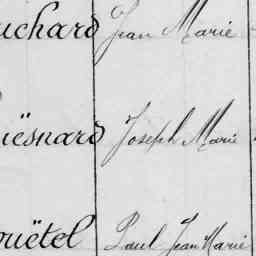 uchard Jean Marie
iësnard Joseph Marie
ouëtel Paul Jean Marie